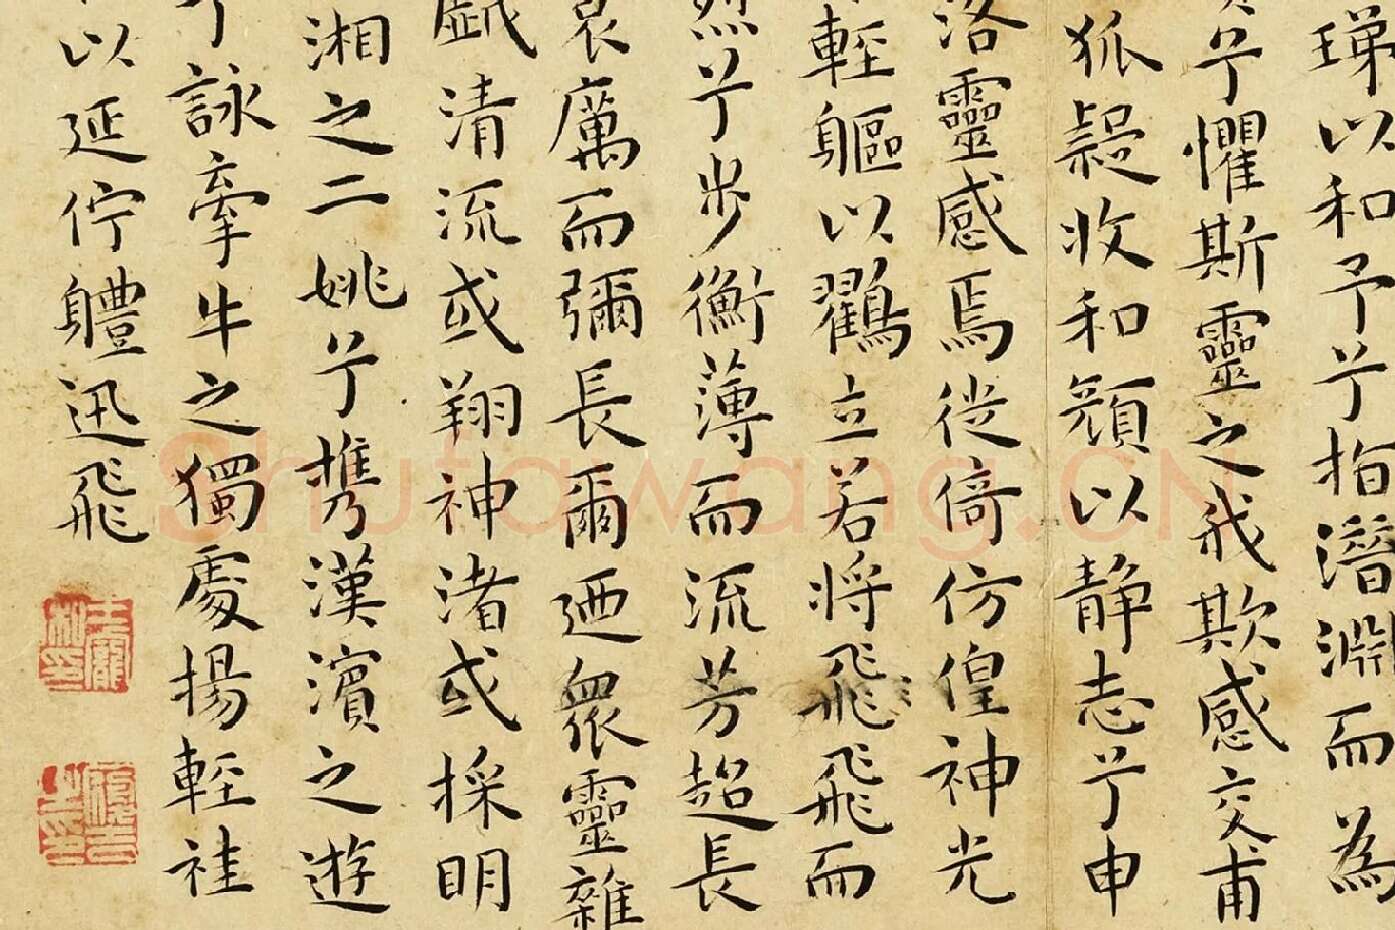 珶以和予兮指潛淵而為
兮懼斯靈之我欺感交甫
狐疑收和顏以静志兮申
洛靈感焉徙倚仿偟神光
輕軀以鸖立若将飛飛而
烈兮步蘅薄而流芳超長
哀厲而彌長爾迺衆靈雜
戲清流或翔神渚或採明
湘之二姚兮携漢濱之遊
兮詠牽牛之獨處揚輕袿
以延佇軆迅飛
Shufawang.CN